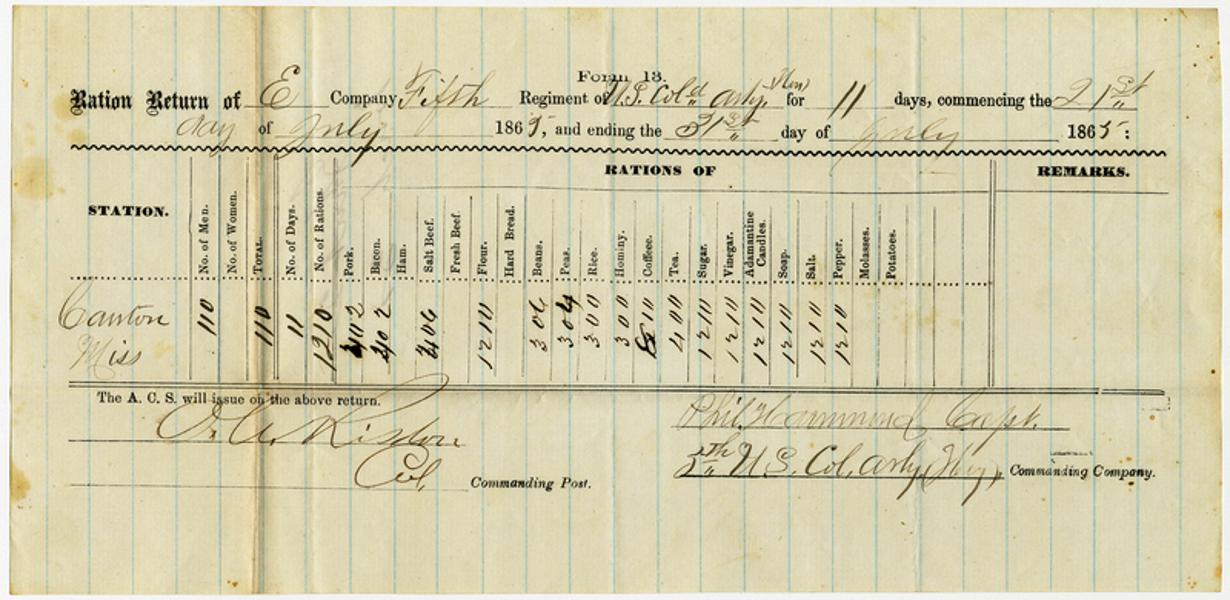 Form 13.
Ration Return of E Company Fifth Regiment of U.S. Col^d Arty. (Hvy) for 11 days, commencing the 21st
day of July 1865, and ending the 31st day of July 1865:
RATIONS OF
REMARKS.
STATION.
No. of Men.
No. of Women.
TOTAL.
No. of Days.
No. of Rations.
Pork.
Bacon.
Ham.
Salt Beef.
Fresh Beef.
Flour.
Hard Bread.
Beans.
Peas.
Rice.
Hominy.
Coffeee.
Tea.
Sugar.
Vinegar.
Adamantine Candles.
Soap.
Salt.
Pepper.
Molasses.
Potatoes.
Canton Miss
110 110 11 1210 402 402 406 1210 306 304 300 300 810 400 1210 1210 1210 1210 1210 1210
The A. C. S. will issue on the above return.
Phil. Hammond Capt.
O. A. Risdon
5th U.S. Col. Arty. (Hvy), Commanding Company.
Col. Commanding Post.